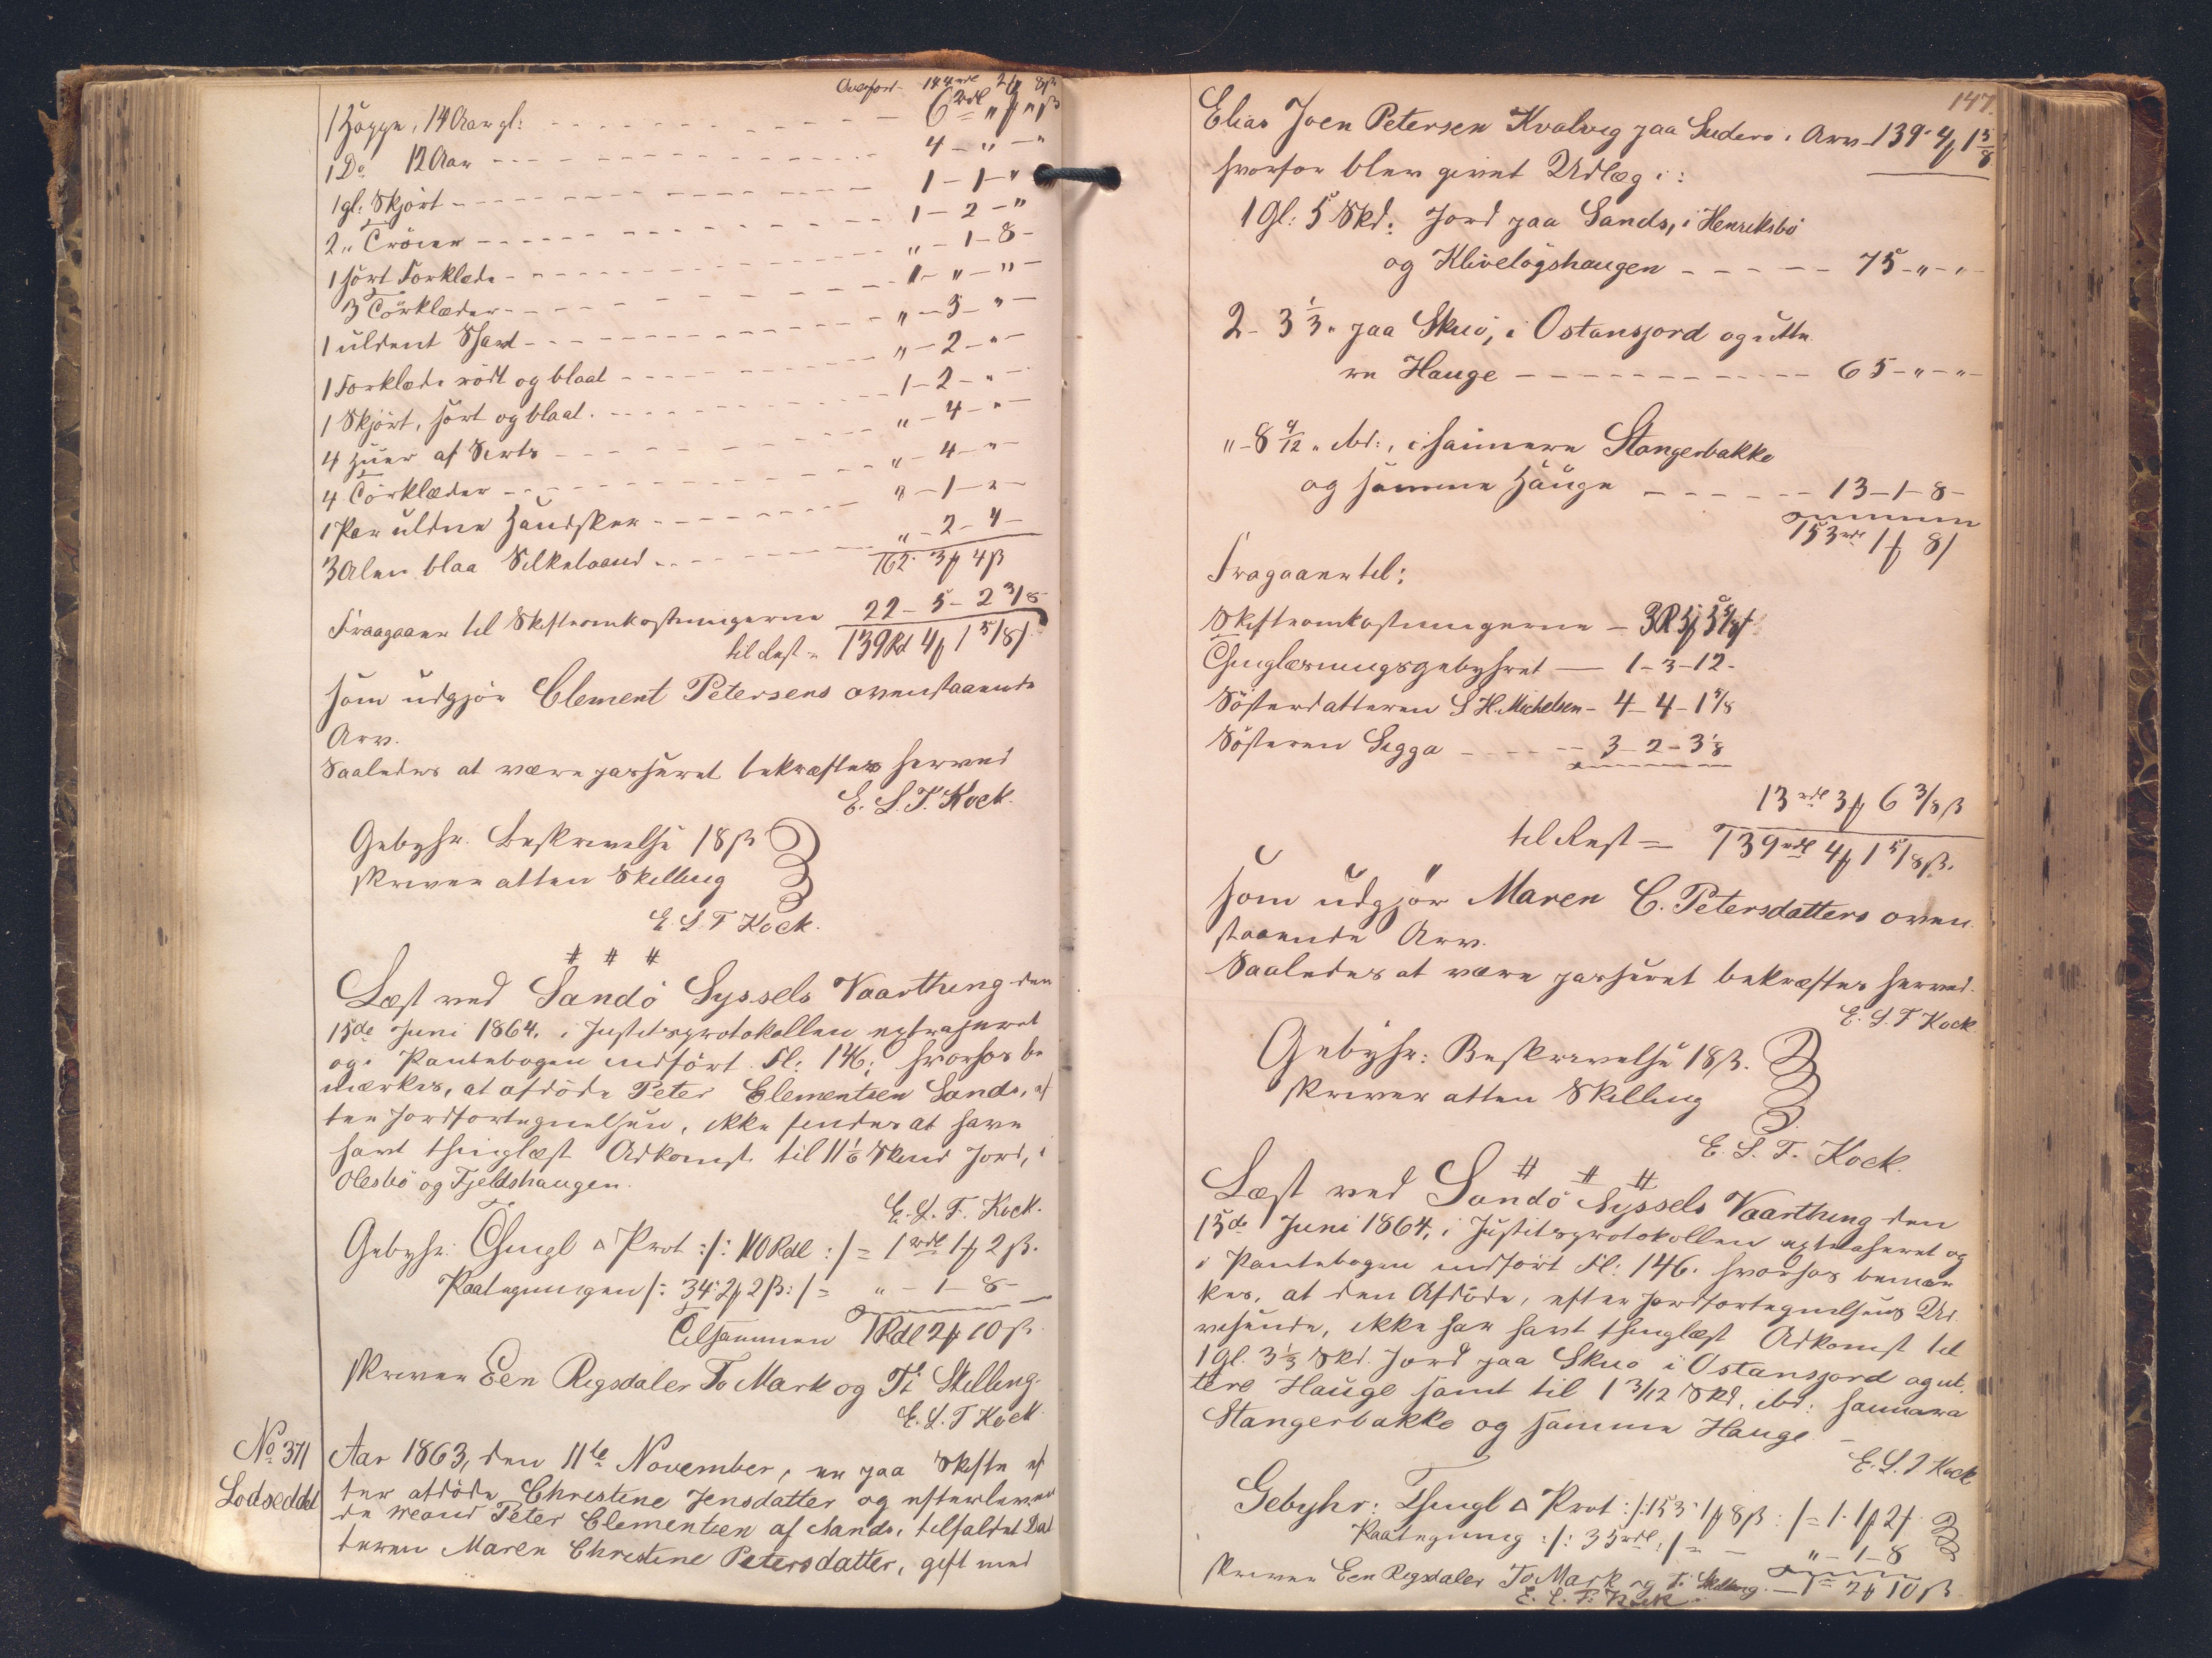 Overført 144 rdl 2 ƒ 8 ß
1 Høppe, 14 Aar gl: - - - 6 rdl " ƒ " ß
1 Do 12 Aar - - - 4 - " - "
1 gl: Skjört - - - 1 - 1 - "
2 " Tröier - - - 1 - 2 - "
1 sort Forklæde - - - " - 1 - 8 -
3 Törklæder - - - 1 - " - " -
1 uldent Shavl - - - " - 3 - " -
1 Forklæde rödt og blaat - - - " - 2 - " -
1 Skjört, sort og blaat. - - - 1 - 2 - " -
4 Huer af Sirts - - - " - 4 - " -
4 Törklæder - - - " - 4 - " -
1 Par uldne Handsker - - - " - 1 - " -
3 Alen blaa Silkebaand - - - " - 2 - 4 -
162 - 3 ƒ 4 ß
Fragaaer til Skifteomkostningerne 22 - 5 - 2 3/8
til Rest = 139 Rd 4 ƒ 1 5/8 ß
som udgjör Clement Petersens ovenstaaende
Arv.
Saaledes at være passeret bekræftes herved
E. L. T. Kock.
Gebyhr. Beskrivelse 18 ß
skriver atten Skilling
E. L. T Kock.
# # #
Læst ved Sandö Syssels Vaarthing den
15de Juni 1864, i Justitsprotokollen extraheret
og i Pantebogen indfört Fl: 146; hvorhos be
mærkes, at afdöde Peter Clementsen Sands, ef
ter Jordfortegnelsen, ikke findes at have
havt thinglæst Adkomst til 11 1/6 Skind Jord, i
Olesbö og Fjeldshaugen.
E. L. T. Kock.
Gebyhr: Thingl & Prot :/: 110 Rdl :/ = 1 rdl 1 ƒ 2 ß.
Paategningen /: 34 - 2 ƒ 2 ß :/ = " - 1 - 8 -
Tilsammen 1 Rdl 2 ƒ 10 ß
skriver Een Rigsdaler To Mark og Ti Skilling.
E. L. T Kock
No 371 Aar 1863, den 11te November, er paa Skifte ef
Lodseddel ter afdöde Christine Jensdatter og efterleven
de Mand Peter Clementsen af Sands, tilfaldet Dat
teren Maren Christine Petersdatter, gift med
147.
Elias Joen Petersen Kvalvig paa Suderö i Arv - 139 - 4 ƒ 1 5/8
hvorfor blev givet Udlæg i:
1 Gl: 5 Skd: Jord paa Sands, i Henriksbö
og Klivelögshaugen - - - 75 - " - " -
2 - 3 1/3 " paa Skuö, i Ostansjord og utte
re Hauge - - - 65 - " - " -
" - 8 4/12 " ibd:, i haimere Stangerbakke
og samme Hauge - - - 13 - 1 - 8 -
153 rdl 1 ƒ 8 ß
Fragaaer til:
Skifteomkostningerne -
Thinglæsningsgebyhret - 1 - 3 - 12 -
Sösterdatteren S H. Michelsen - 4 - 4 - 1 5/8
Sösteren Sigga - - - 3 - 2 - 3 1/8
13 rdl 3 ƒ 6 3/8 ß
til Rest = 139 rdl 4 ƒ 1 5/8 ß.
som udgjör Maren C. Petersdatters oven
staaende Arv.
Saaledes at være passeret bekræftes herved.
E. L. T Kock
Gebyhr: Beskrivelse 18 ß.
skriver atten Skilling
E. L. T. Kock.
# # #
Læst ved Sandö Syssels Vaarthing den
15de Juni 1864, i Justitsprotokollen extraheret og
i Pantebogen indfört Fl: 146. hvorhos bemær
kes, at den Afdöde, efter Jordfortegnelsens Ud
visende, ikke har havt thinglæst Adkomst til
1 Gl. 3 1/3 Skd. Jord paa Skuö i Ostansjord og ut
tere Hauge samt til 1 3/12 Skd. ibd: haimara
Stangerbakke og samme Hauge -
E. L. T Kock
Gebyhr: Thingl & Prot :/: 153 - 1 ƒ 8 ß :/ = 1 - 1 ƒ 2 ß
Paategning :/: 35 rdl :/ = - " - 1 - 8
skriver Een Rigsdaler To Mark og Ti Skilling. - 1 = 2 ƒ 10 ß
E. L. T. Kock